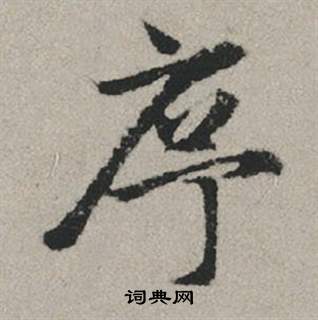 序
词典网